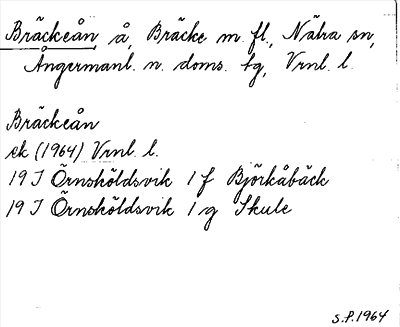 Bräckeån å, Bräcke m. fl., Nätra sn,
Ångermanl. n. doms. tg, Vrnl. l.
Bräckeån
ek (1964) Vrnl. l.
19 J Örnsköldsvik 1 f Björkåbäck
19 J Örnsköldsvik 1 g Skule
S.P. 1964